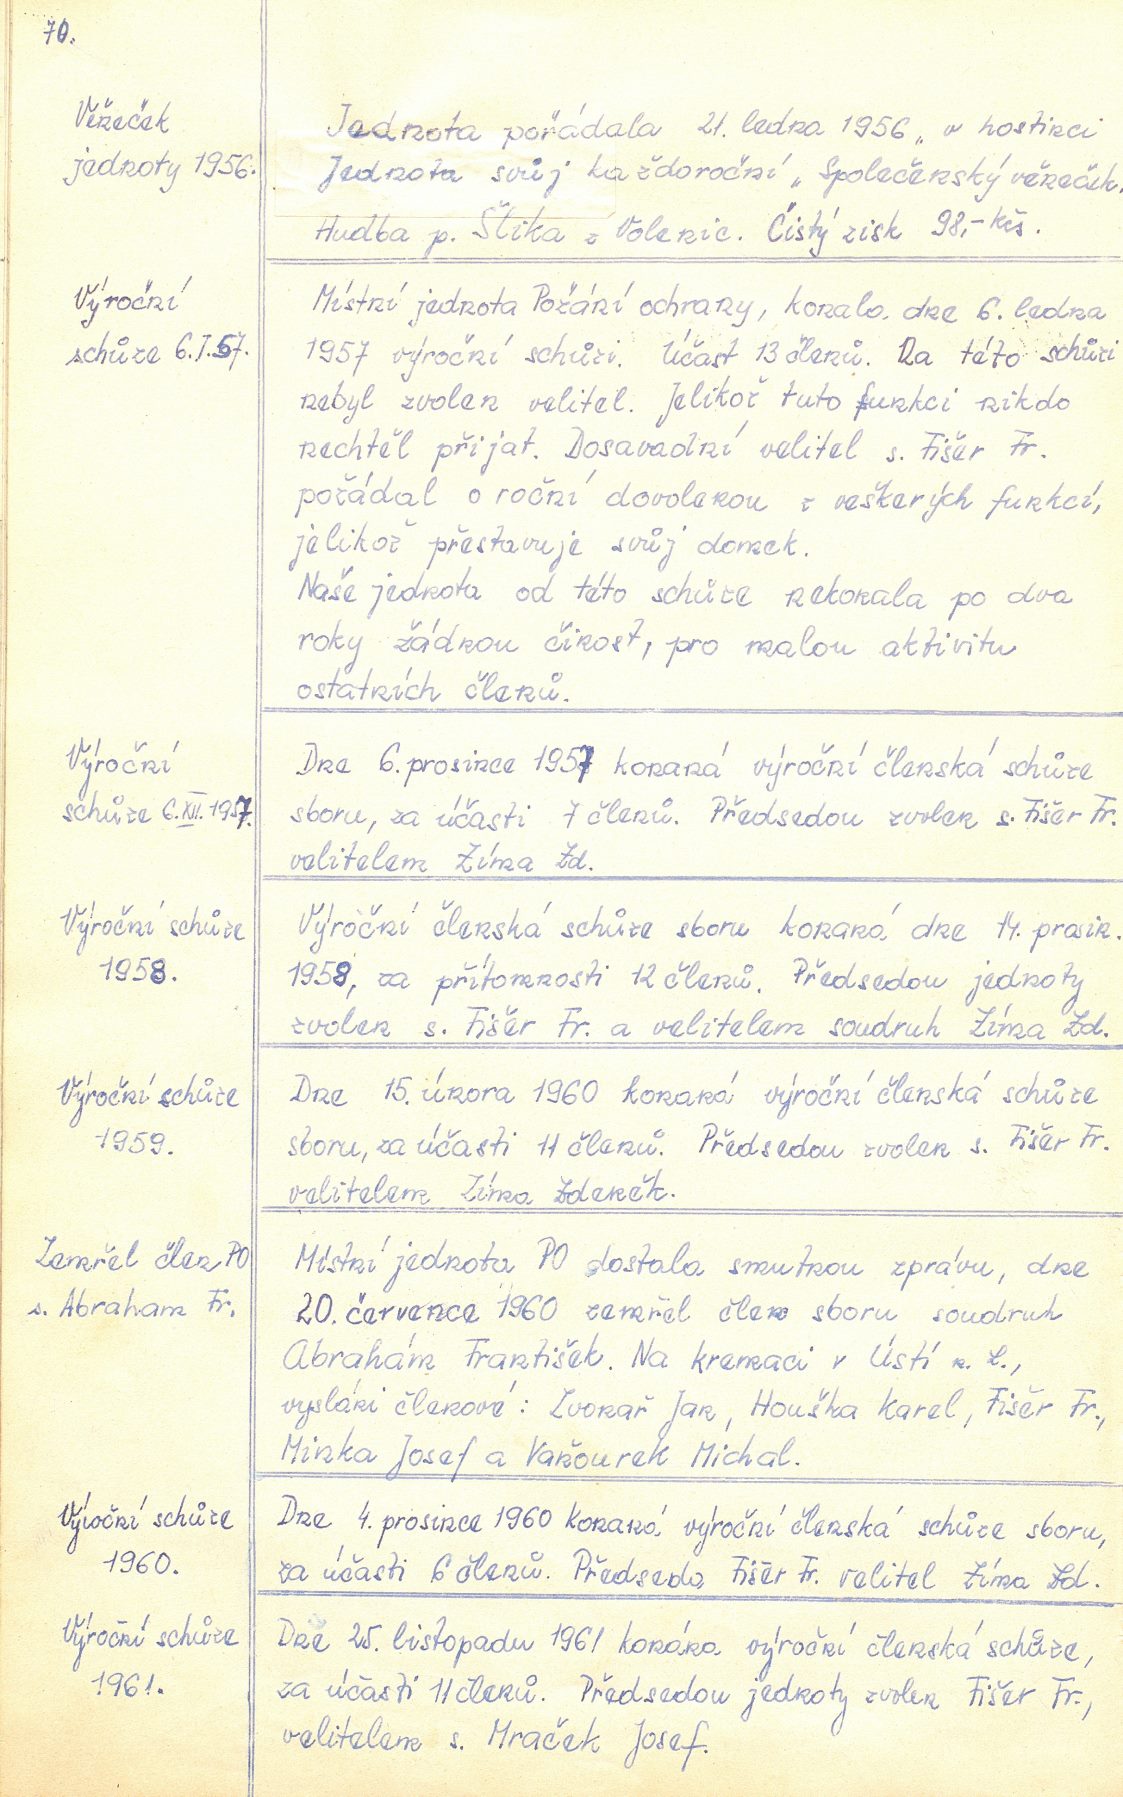 70.
Věneček
jednoty 1956.
Jednota pořádala 21. ledna 1956 „ v hostinci
Jednota svůj každoroční „ Společenský věneček.
Hudba p. Šlika z Volenic. Čistý zisk 98,- Kčs.
Výroční
schůze 6.I.57.
Místní jednota Požární ochrany, konala dne 6. ledna
1957 výroční schůzi. Účast 13 členů. Na této schůzi
nebyl zvolen velitel. Jelikož tuto funkci nikdo
nechtěl přijat. Dosavadní velitel s. Fišer Fr.
požádal o roční dovolenou z veškerých funkcí,
jelikož přestavuje svůj domek.
Naše jednota od této schůze nekonala po dva
roky žádnou činost, pro malou aktivitu
ostatních členů.
Výroční
schůze 6.XII.1957.
Dne 6. prosince 1957 konaná výroční členská schůze
sboru, za účasti 7 členů. Předsedou zvolen s. Fišer Fr.
velitelem Zíma Zd.
Výroční schůze
1958.
Výroční členská schůze sboru konaná dne 14. prosin.
1958, za přítomnosti 12 členů. Předsedou jednoty
zvolen s. Fišer Fr. a velitelem soudruh Zíma Zd.
Výroční schůze
1959.
Dne 15. února 1960 konaná výroční členská schůze
sboru, za účasti 11 členů. Předsedou zvolen s. Fišer Fr.
velitelem Zíma Zdeněk.
Zemřel člen PO
s. Abraham Fr.
Místní jednota PO dostala smutnou zprávu, dne
20. července 1960 zemřel člen sboru soudruh
Abrahám František. Na kremaci v Ústí n. L.,
vysláni členové: Zvonař Jan, Houška Karel, Fišer Fr.,
Minka Josef a Vaňourek Michal.
Výroční schůze
1960.
Dne 4. prosince 1960 konaná výroční členská schůze sboru,
za účasti 6 členů. Předseda Fišer Fr. velitel Zíma Zd.
Výroční schůze
1961.
Dne 25. listopadu 1961 konána výroční členská schůze,
za účasti 11 členů. Předsedou jednoty zvolen Fišer Fr.,
velitelem s. Mraček Josef.